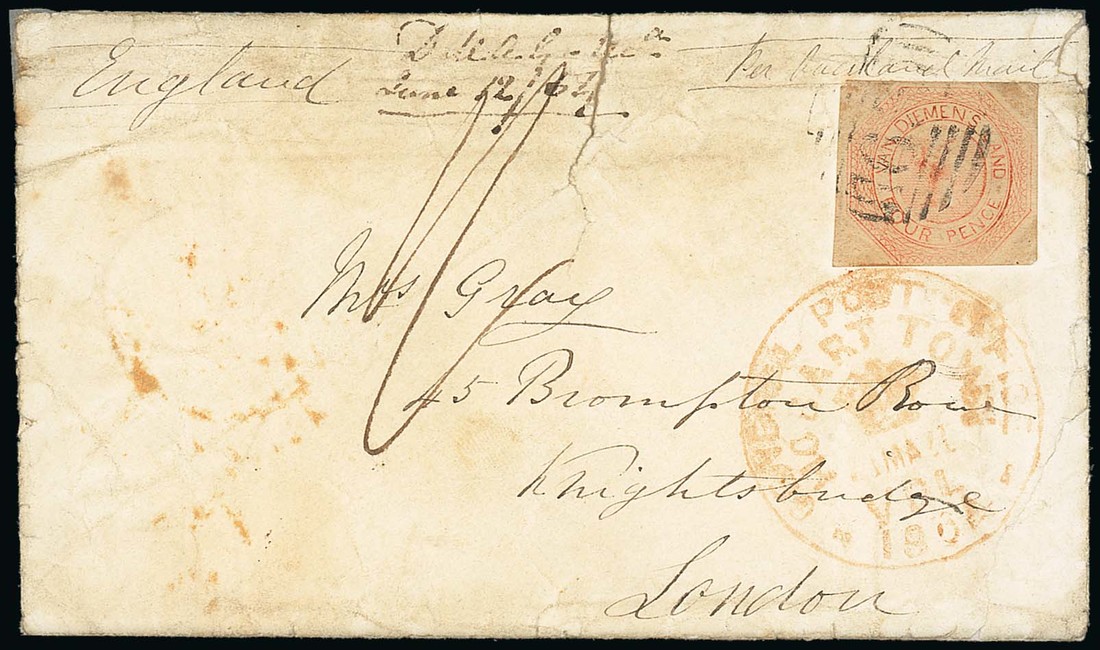 England
June 12
Per Overland Mail
VAN DIEMENS LAND
FOUR PENCE
Mrs Gray
45 Brompton Row
Knightsbridge
London
POST OFFICE
HOBART TOWN